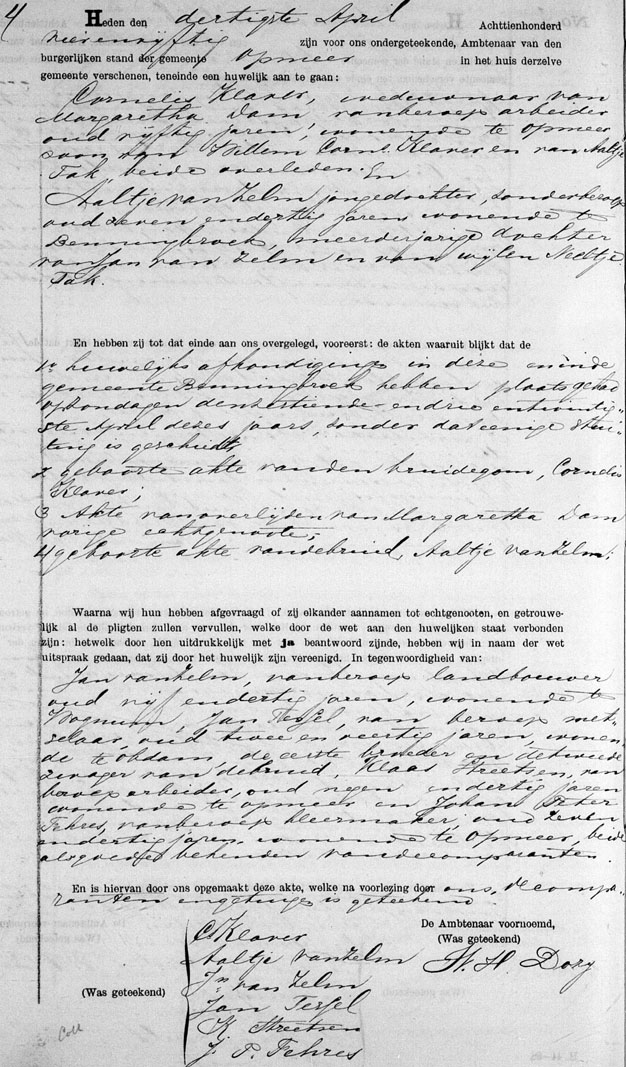 4
Heden den dertigste April Achttienhonderd
vierenvijftig zijn voor ons ondergeteekende, Ambtenaar van den
burgerlijken stand der gemeente Opmeer in het huis derzelve
gemeente verschenen, teneinde een huwelijk aan te gaan:
Cornelis Klaver, weduwnaar van
Margaretha Dam, van beroep arbeider
oud vijftig jaren, wonende te Opmeer,
zoon van Willem Corns. Klaver en van Aaltje
Tak, beide overleden. En
Aaltje van Zelm jongedochter, zonder beroep
oud zeven en dertig jaren wonende te
Benningbroek, meerderjarige dochter
van Jan van Zelm en van wijlen Neeltje
Tak.
En hebben zij tot dat einde aan ons overgelegd, vooreerst: de akten waaruit blijkt dat de
1e huwelijks afkondigingen in deze en in de
gemeente Benningbroek hebben plaats gehad
op Zondagen den zestiende en drie en twintig-
ste April dezes jaars, zonder dat eenige stui-
ting is geschiedt
2 geboorte akte van den bruidegom, Cornelis
Klaver;
3 Akte van overlijden van Margaretha Dam
vorige echtgenoote;
4 geboorte akte van de bruid, Aaltje van Zelm;
Waarna wij hun hebben afgevraagd of zij elkander aannamen tot echtgenooten, en getrouwe-
lijk al de pligten zullen vervullen, welke door de wet aan den huwelijken staat verbonden
zijn: hetwelk door hen uitdrukkelijk met ja beantwoord zijnde, hebben wij in naam der wet
uitspraak gedaan, dat zij door het huwelijk zijn vereenigd. In tegenwoordigheid van:
Jan van Zelm, van beroep landbouwer
oud vijf en dertig jaren, wonende te
Wognum, Jan Tessel, van beroep met-
selaar, oud twee en veertig jaren, wonen-
de te Obdam, de eerste broeder en de tweede
zwager van de bruid, Klaas Streetsen, van
beroep arbeider, oud negen en dertig jaren
wonende te Opmeer en Johan Peter
Fehres, van beroep kleermaker, oud zeven
en dertig jaren, wonende te Opmeer, beide
als goede bekenden van de comparanten.
En is hiervan door ons opgemaakt deze akte, welke na voorlezing door ons, de compa-
ranten en getuigen is geteekend
C Klaver
Aaltje van Zelm
Jn van Zelm
Jan Tessel
K Streetsen
J. P. Fehres
(Was geteekend)
De Ambtenaar voornoemd,
(Was geteekend)
Coll